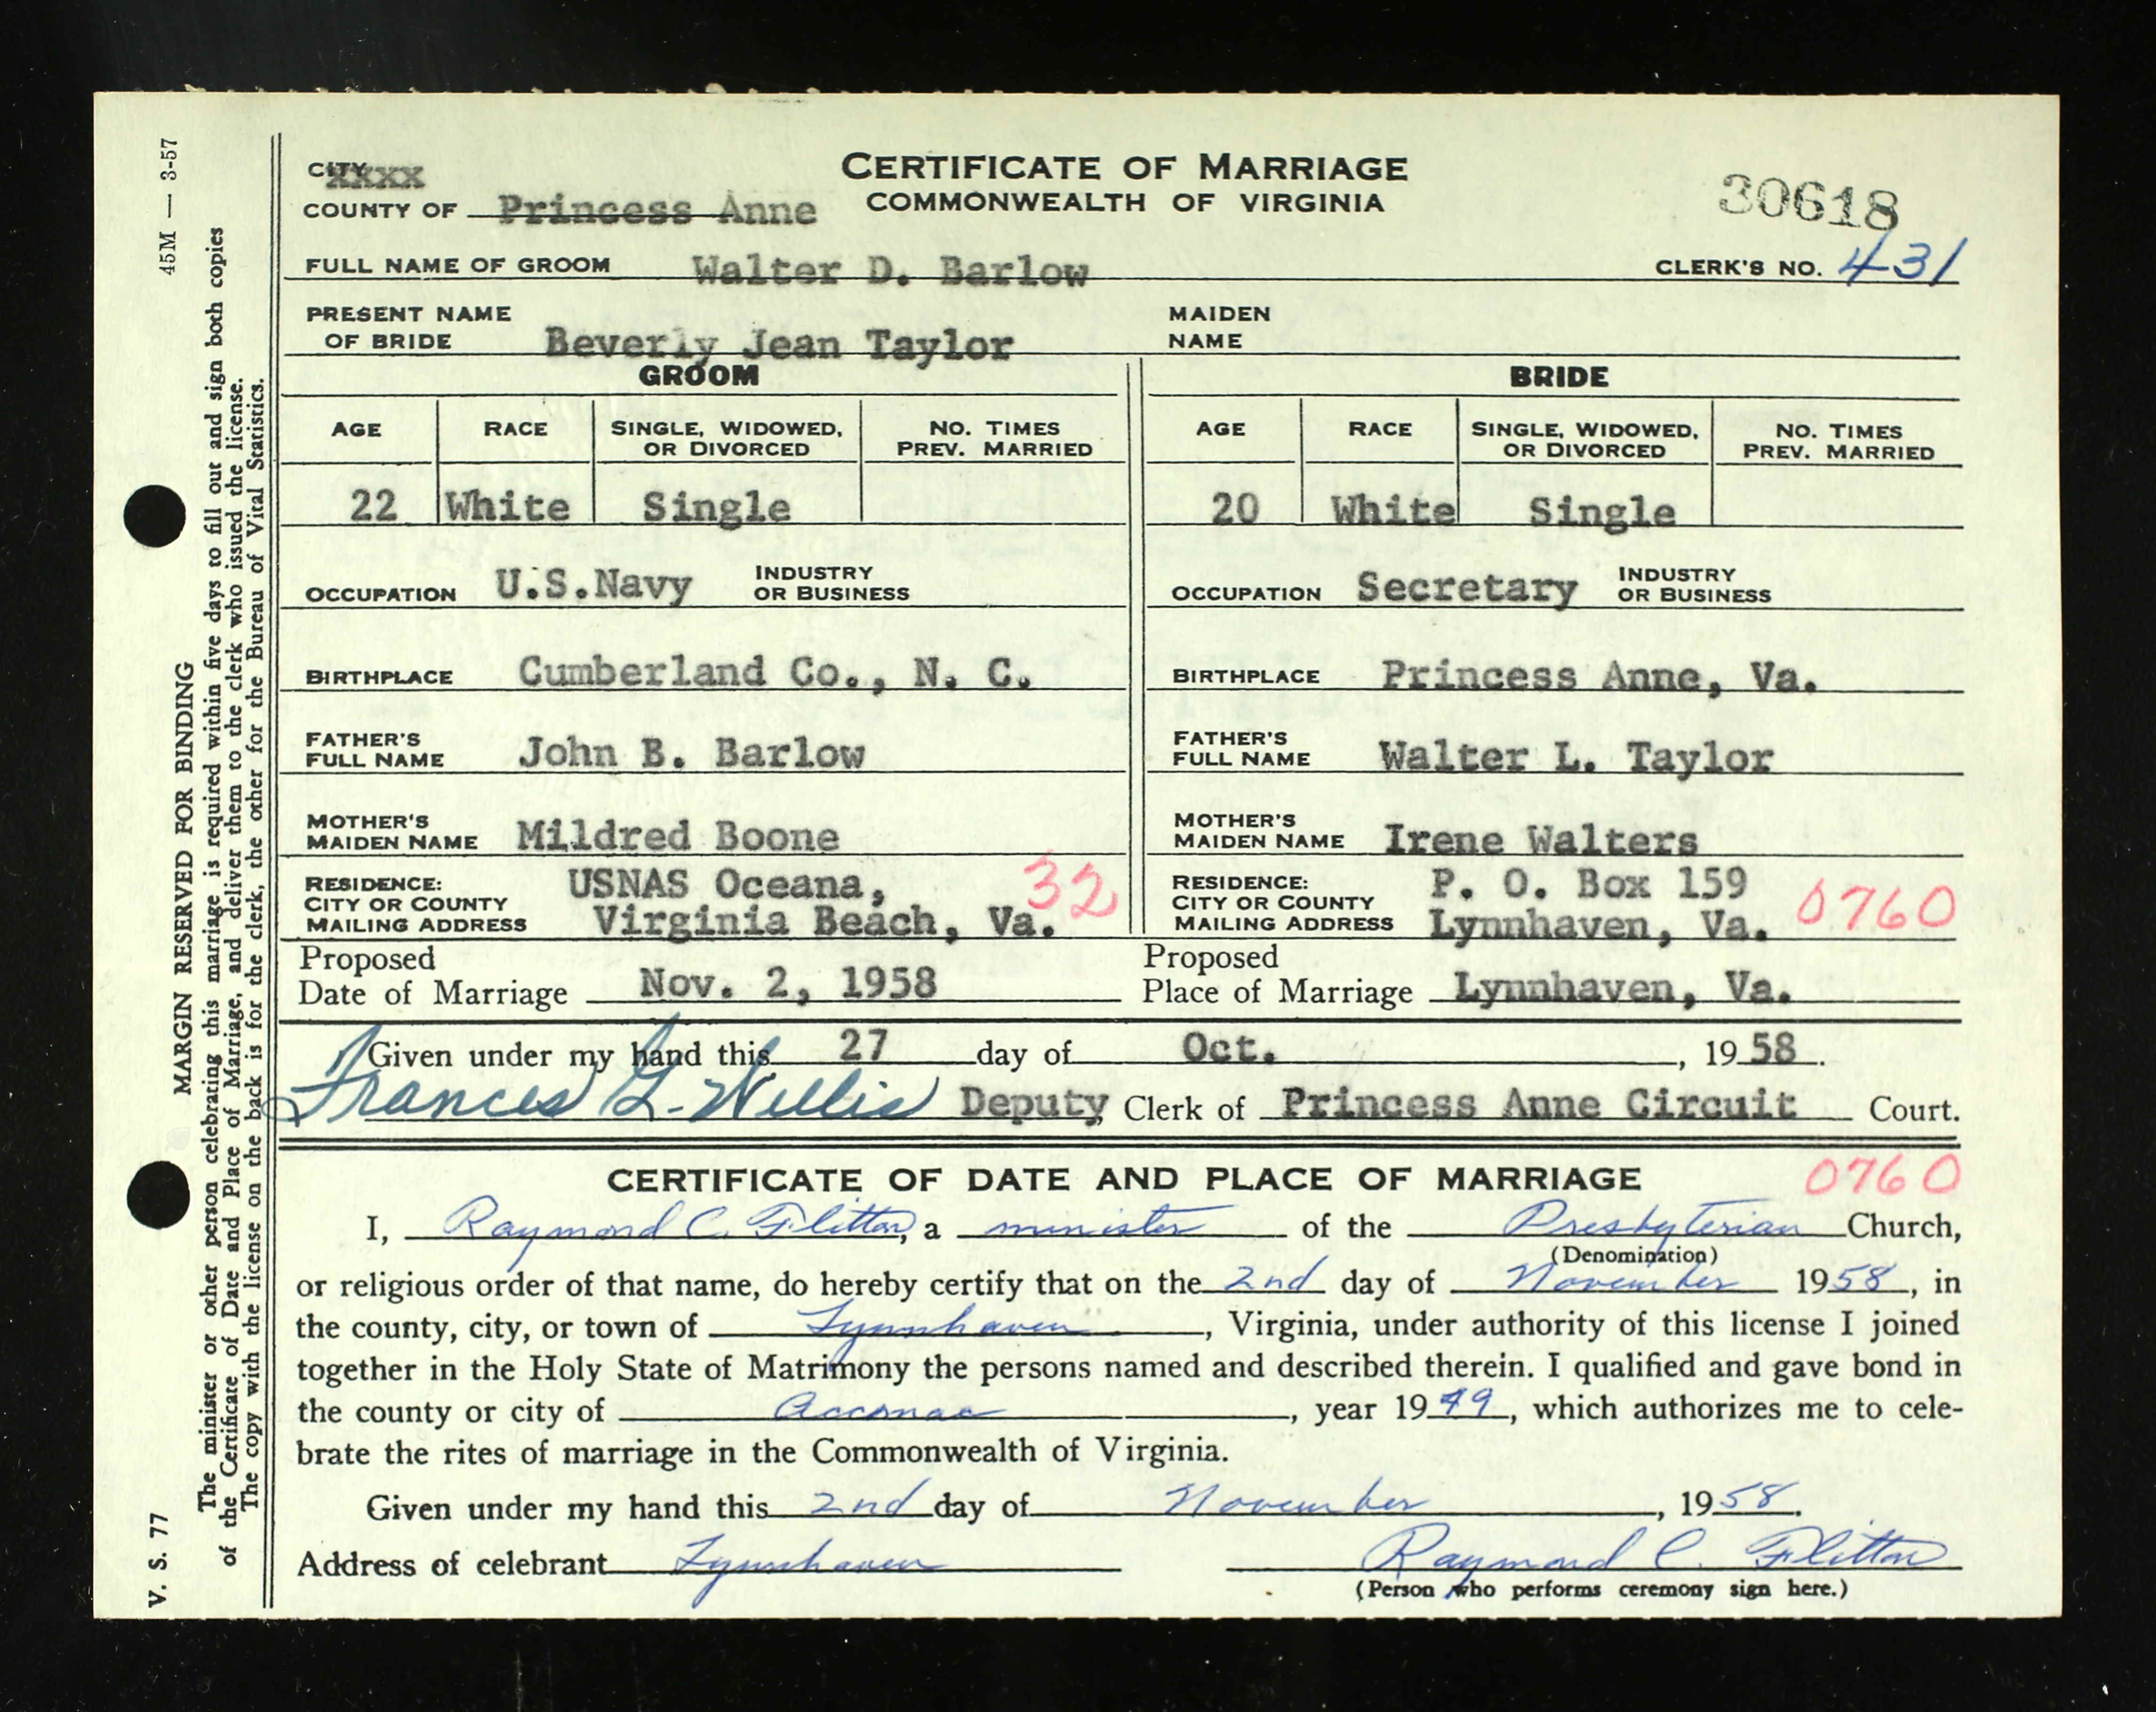 45M — 3-57
MARGIN RESERVED FOR BINDING
The minister or other person celebrating this marriage is required within five days to fill out and sign both copies
of the Certificate of Date and Place of Marriage, and deliver them to the clerk who issued the license.
The copy with the license on the back is for the clerk, the other for the Bureau of Vital Statistics.
V. S. 77
CITY XXXX
CERTIFICATE OF MARRIAGE
COUNTY OF Princess Anne COMMONWEALTH OF VIRGINIA
30618
FULL NAME OF GROOM Walter D. Barlow CLERK'S NO. 431
PRESENT NAME MAIDEN
OF BRIDE Beverly Jean Taylor NAME
GROOM BRIDE
AGE RACE SINGLE, WIDOWED, OR DIVORCED NO. TIMES PREV. MARRIED AGE RACE SINGLE, WIDOWED, OR DIVORCED NO. TIMES PREV. MARRIED
22 White Single 20 White Single
OCCUPATION U.S.Navy INDUSTRY OR BUSINESS OCCUPATION Secretary INDUSTRY OR BUSINESS
BIRTHPLACE Cumberland Co., N. C. BIRTHPLACE Princess Anne, Va.
FATHER'S FULL NAME John B. Barlow FATHER'S FULL NAME Walter L. Taylor
MOTHER'S MAIDEN NAME Mildred Boone MOTHER'S MAIDEN NAME Irene Walters
RESIDENCE: CITY OR COUNTY MAILING ADDRESS USNAS Oceana, Virginia Beach, Va. 32 RESIDENCE: CITY OR COUNTY MAILING ADDRESS P. O. Box 159 Lynnhaven, Va. 0760
Proposed Date of Marriage Nov. 2, 1958 Proposed Place of Marriage Lynnhaven, Va.
Given under my hand this 27 day of Oct. , 19 58 .
Frances G. Willis Deputy Clerk of Princess Anne Circuit Court.
CERTIFICATE OF DATE AND PLACE OF MARRIAGE 0760
I, Raymond C. Flitton, a minister of the Presbyterian Church,
(Denomination)
or religious order of that name, do hereby certify that on the 2nd day of November 1958, in
the county, city, or town of Lynnhaven , Virginia, under authority of this license I joined
together in the Holy State of Matrimony the persons named and described therein. I qualified and gave bond in
the county or city of Accomac , year 1949, which authorizes me to cele-
brate the rites of marriage in the Commonwealth of Virginia.
Given under my hand this 2nd day of November , 1958.
Address of celebrant Lynnhaven Raymond C. Flitton
(Person who performs ceremony sign here.)